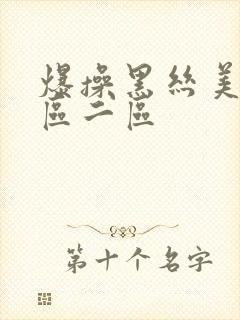 爆操黑丝美
區二區
第十个名字